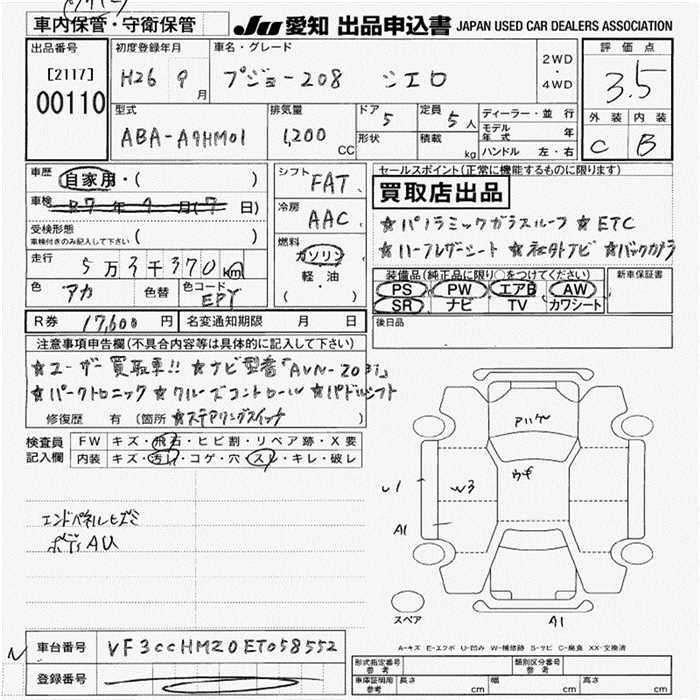 車内保管・守衛保管 JU 愛知 出品申込書 JAPAN USED CAR DEALERS ASSOCIATION
出品番号 初度登録年月 車名・グレード 2WD・4WD 評価点
[2117] H26 9月 プジョー208 シエロ 3.5
00110 型式 排気量 ドア 5 定員 5人 ディーラー・並行 外装 内装
ABA-A9HM01 1,200 CC 形状 積載 kg モデル年式 年 C B
ハンドル 左・右
車歴 自家用・( ) シフト FAT セールスポイント(正常に機能するものに限ります)
車検 R7年9月(7日) 冷房 AAC 買取店出品
受検形態 車検付きのみ記入して下さい ( ) 燃料 ガソリン ☆パノラミックガラスルーフ ☆ETC
走行 5万3千370km 軽・油 ☆ハーフレザーシート ☆社外ナビ ☆バックカメラ
色 アカ 色替 色コード EPY ( ) 装備品(純正品に限り○をつけてください) 新車保証書
PS PW エアB AW
SR ナビ TV カワシート
R券 17,600円 名変通知期限 月 日 後日品
注意事項申告欄(不具合内容等は具体的に記入して下さい)
☆ユーザー買取車!! ☆ナビ型番「AVN-Z03i」
☆パークトロニック ☆クルーズコントロール ☆パドルシフト
修復歴 有 (箇所 ☆ステアリングスイッチ )
検査員記入欄 FW キズ・飛石・ヒビ割・リペア跡・X要
内装 キズ・汚レ・コゲ・穴・スレ・キレ・破レ
アハゲ
ウキ
U1 W3
A1
エンドパネルヒズミ
ボディAU
スペア A1
A-キズ E-エクボ U-凹み W-補修跡 S-サビ C-腐食 XX-交換済
車台番号 VF3CCHMZ0ET058552
登録番号
形式指定番号 参考 類別区分番号 参考
車庫証明用 参考 長さ cm 幅 cm 高さ cm